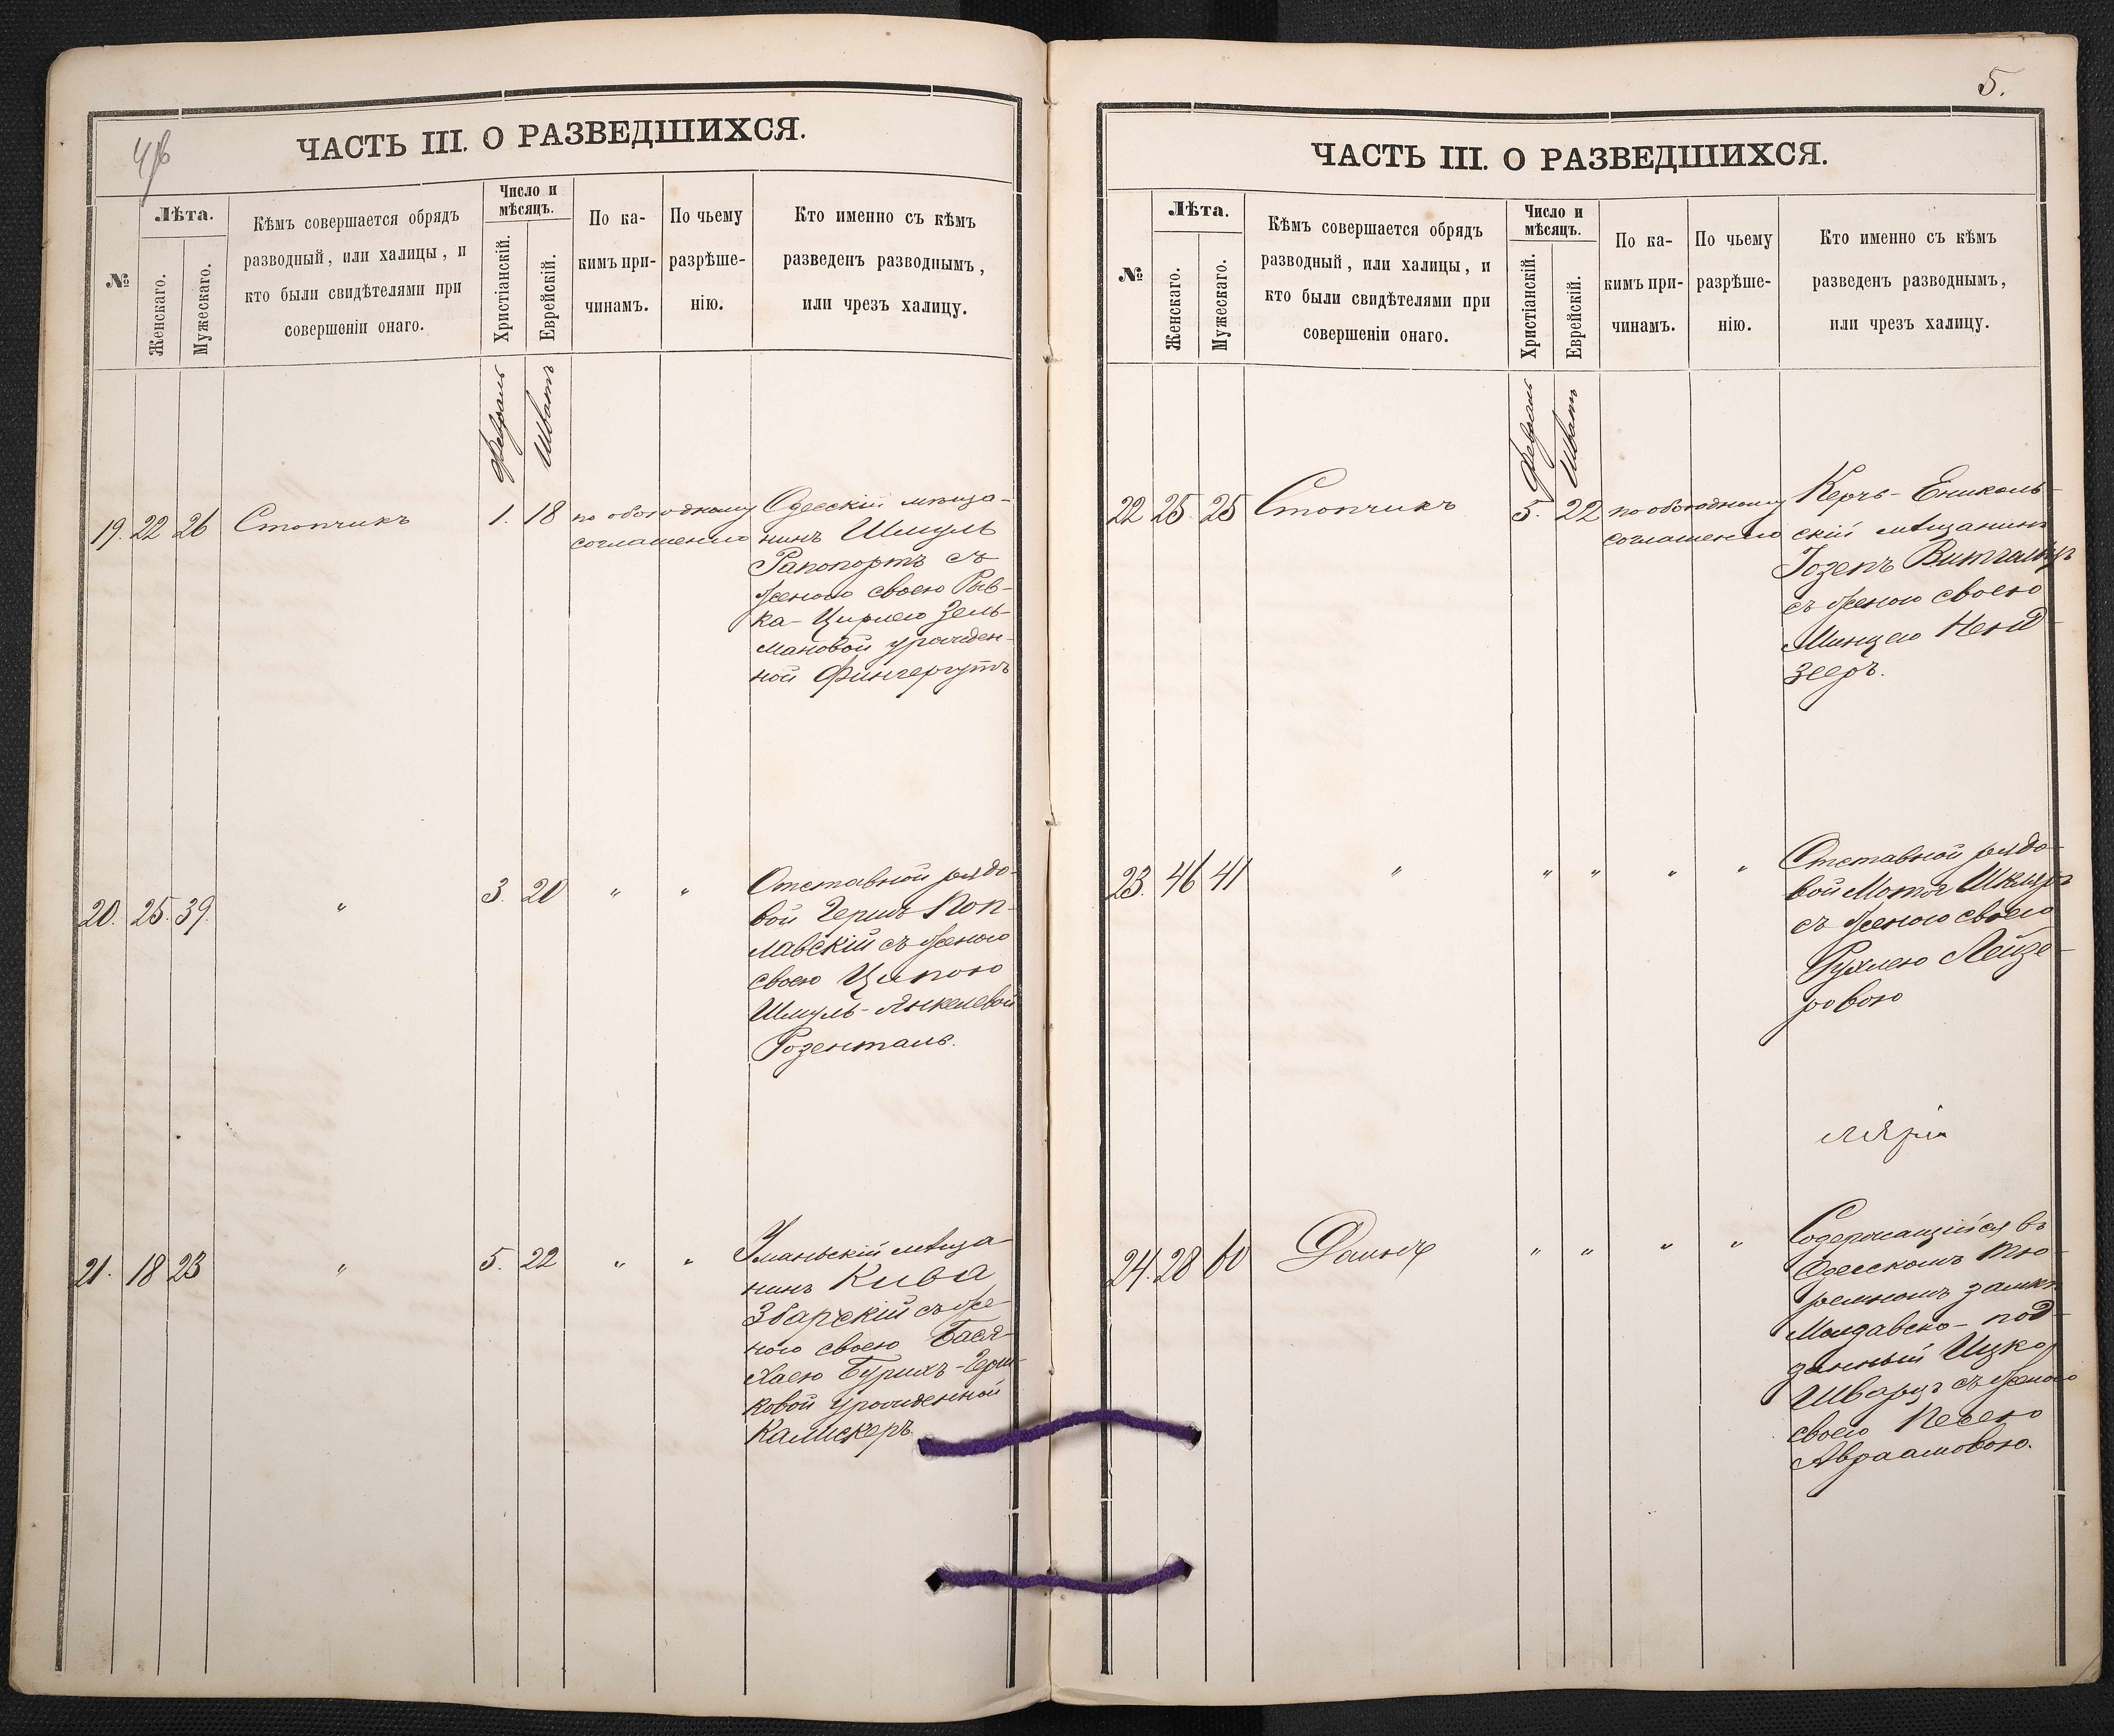 4/б
ЧАСТЬ III. О РАЗВЕДШИХСЯ.
№
Лѣта.
Женскаго.
Мужескаго.
Кѣмъ совершается обрядъ
разводный, или халицы, и
кто были свидѣтелями при
совершеніи онаго.
Число и
мѣсяцъ.
Христіанскій.
Еврейскій.
По ка-
кимъ при-
чинамъ.
По чьему
разрѣше-
нію.
Кто именно съ кѣмъ
разведенъ разводнымъ,
или чрезъ халицу.
Февраль
Шватъ
19. 22 26 Стопчикъ 1. 18 по обоюдному
соглашенію
Одесскій мѣща-
нинъ Шмуль
Рапопортъ съ
женою своею Рыв-
ка-Цирлею Зель-
мановой урожден-
ной Фингергутъ
20. 25. 39. " 3 20 " "
Отставной рядо-
вой Гершъ Поп-
лавскій съ женою
своею Ципою
Шмуль-Янкелевой
Розенталь.
21. 18 23 " 5. 22 " "
Уманьскій мѣща-
нинъ Кива
Збарскій съ же-
ною своею Бася-
Хаею Бурихъ-Герш-
ковой урожденной
Калискеръ
5.
ЧАСТЬ III. О РАЗВЕДШИХСЯ.
№
Лѣта.
Женскаго.
Мужескаго.
Кѣмъ совершается обрядъ
разводный, или халицы, и
кто были свидѣтелями при
совершеніи онаго.
Число и
мѣсяцъ.
Христіанскій.
Еврейскій.
По ка-
кимъ при-
чинамъ.
По чьему
разрѣше-
нію.
Кто именно съ кѣмъ
разведенъ разводнымъ,
или чрезъ халицу.
Февраль
Шватъ
22 25. 25 Стопчикъ 5. 22 по обоюдному
соглашенію
Керчь-Ениколь-
скій мѣщанинъ
Іозепъ
съ женою своею
Минцею Ней-
зеръ.
23. 46 41 " " " " "
Отставной рядо-
вой Мотя Шкляръ
съ женою своею
Рухлею Лейзе-
ровою
24. 28 60 " " " "
Содержащійся въ
Одесскомъ тю-
ремномъ замкѣ
Молдавско-под-
занный Ицко
Шварцъ съ женою
своею Песею
Авраамовою.